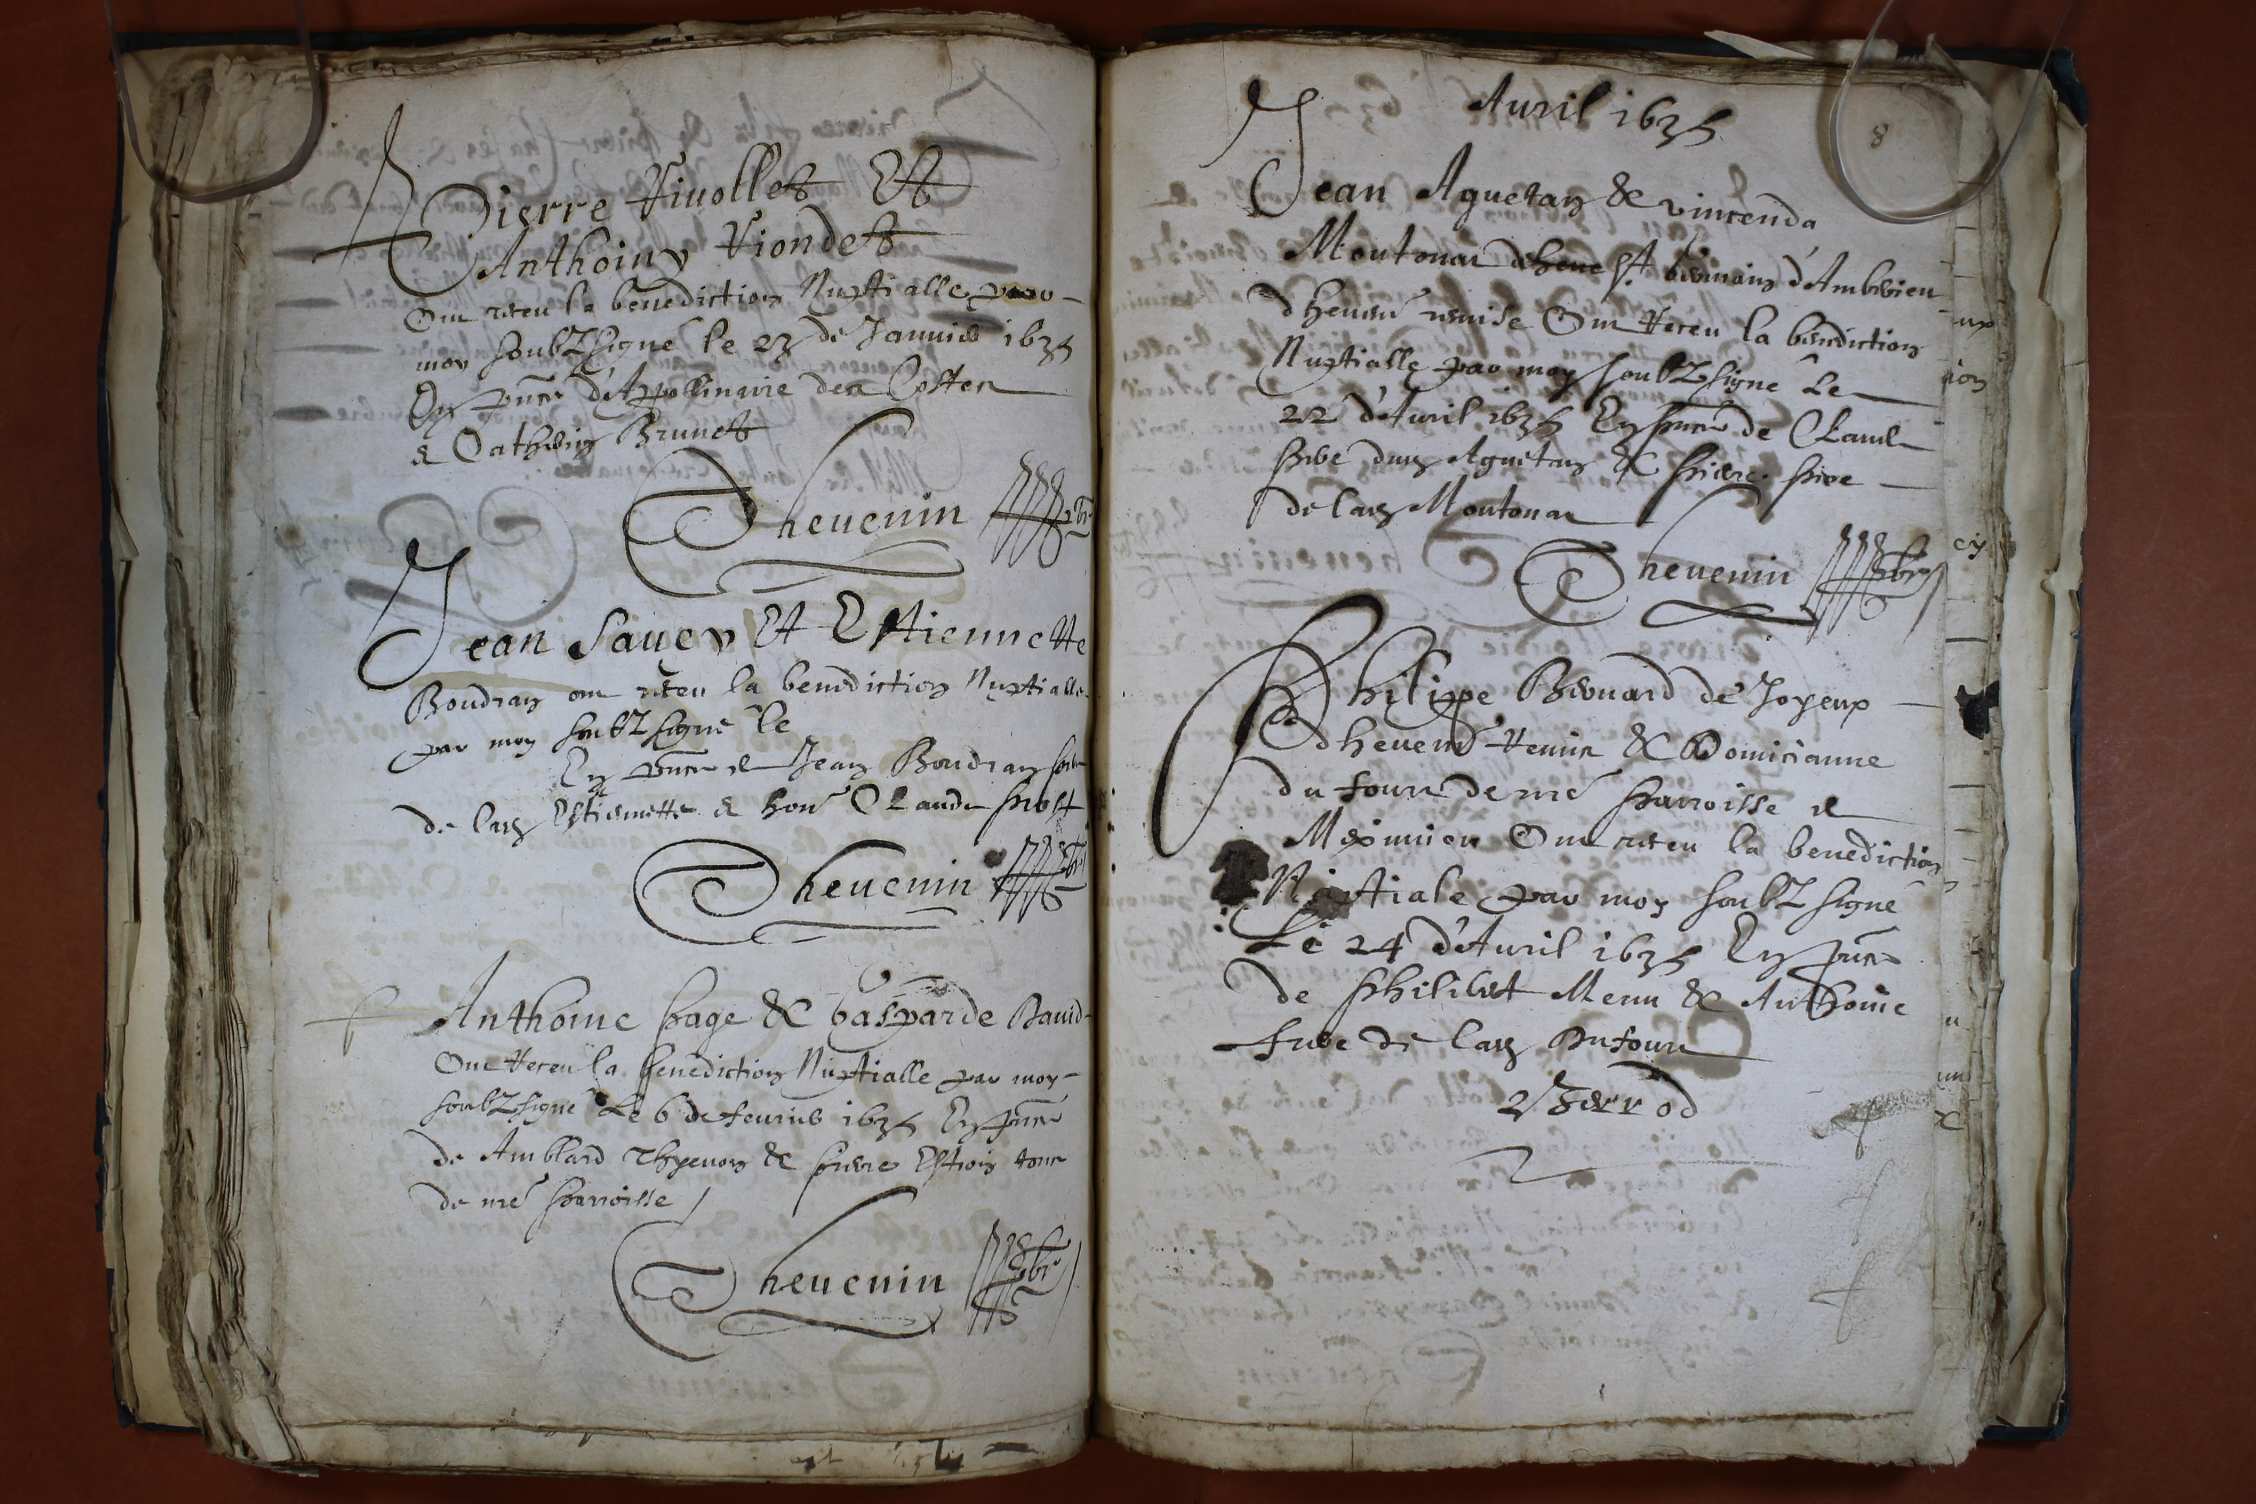 Pierre Riuollet Et
Anthoiny Riondet
Ont receu la benediction Nuptialle par
moy soubzsigné le 23 de Januier 1635
En pnce d'Appollinaire des Costes
& Catherin Brunet
Theuenin pbr
Jean Sauey Et Estiennette
Boudran ont receu la benediction Nuptialle
par moy soubzsigné le
En pnce de Jean Boudran
de lad Estiennette & hone Claude Prost
Theuenin pbr
Anthoine Page & Gasparde Bauid
Ont Receu la benediction Nuptialle par moy
soubzsigné Le 6 de feurier 1635 En pnce
de Amblard Thyeuon & Pierre tous
de nre Parroisse
Theuenin pbr
8
Auril 1635
Jean Aguetan & vincenda
Moutonat
Ont Receu la benediction
Nuptialle par moy soubzsigné Le
22 d'Auril 1635 En pnce de Claude
dud Aguetan & Pierre
de lad Moutonat
Theuenin pbr
Philippe de Joyeux
& Domicianne
du four de nre Parroisse de
Meximieu Ont receu la benediction
Nuptiale par moy soubzsigné
Le 24 d'Auril 1635 En pnce
de Philibert & Anthoine
de lad Dufour